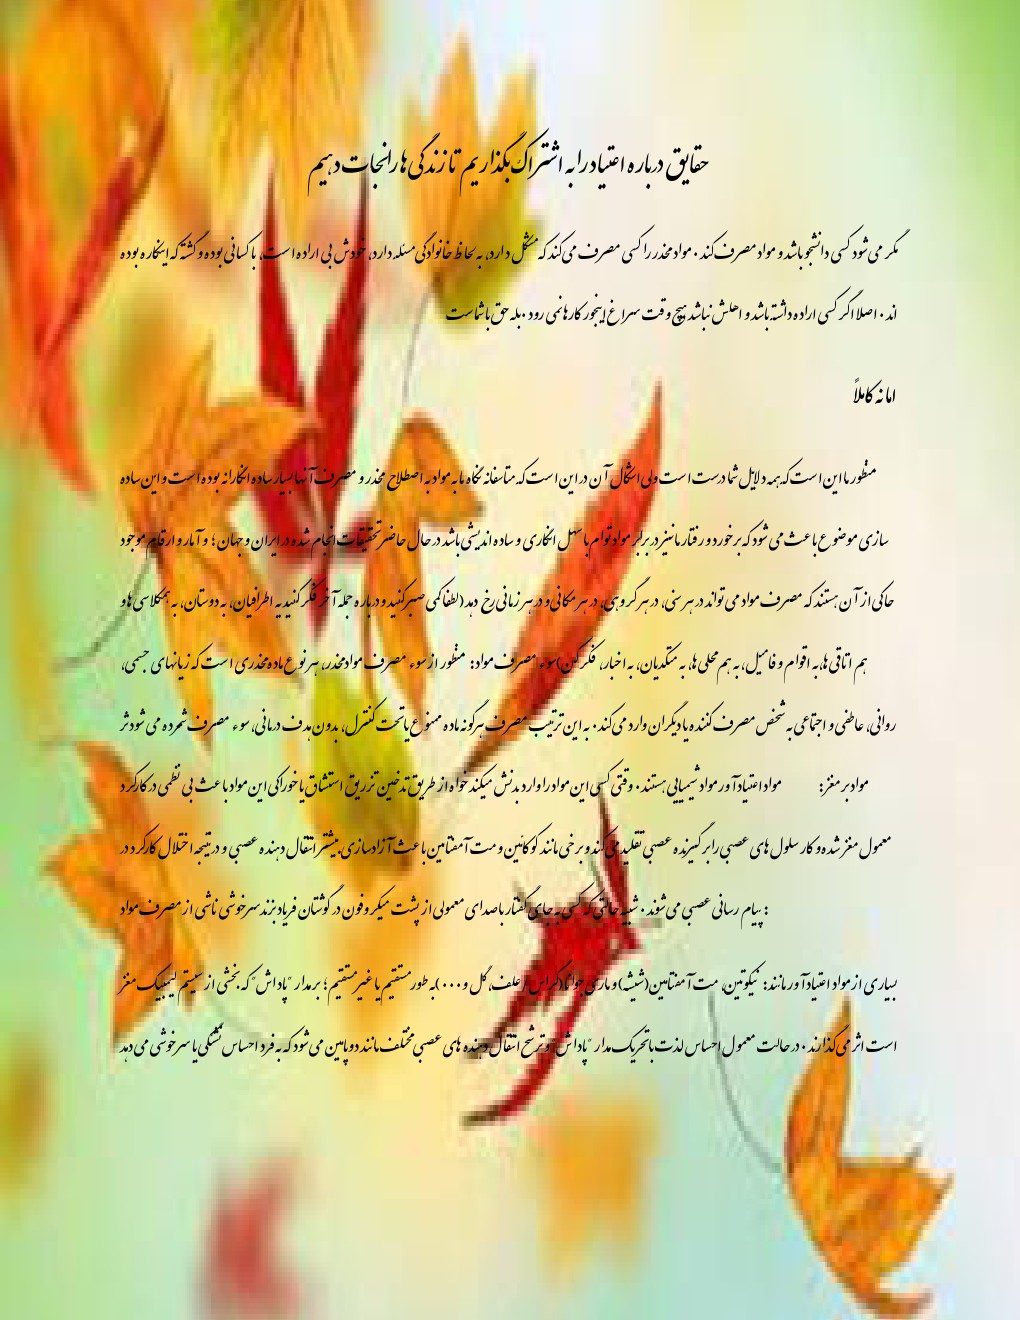 حقایق درباره اعتیاد را به اشتراک بگذاریم تا زندگی ها را نجات دهیم
مگر می شود کسی دانشجو باشد و مواد مصرف کند. مواد مخدر را کسی مصرف می کند که مشکل دارد، به لحاظ خانوادگی مسئله دارد، خودش بی اراده است، با کسانی بوده و گشته که اینکاره بوده
اند. اصلا اگر کسی اراده داشته باشد و اهلش نباشد هیچ وقت سراغ اینجور کارها نمی رود. بله حق با شماست
اما نه کاملاً
منظور ما این است که همه دلایل شما درست است ولی اشکال آن در این است که متاسفانه نگاه ما به مواد به اصطلاح مخدر و مصرف آنها بسیار ساده انگارانه بوده است و این ساده
سازی موضوع باعث می شود که برخورد و رفتار ما نیز در برابر مواد توام با سهل انگاری و ساده اندیشی باشد در حال حاضر تحقیقات انجام شده در ایران و جهان؛ و آمار و ارقام موجود
حاکی از آن هستند که مصرف مواد می تواند در هر سنی، در هر گروهی، در هر مکانی و در هر زمانی رخ دهد (لطفا کمی صبر کنید و درباره جمله آخر فکر کنید به اطرافیان، به دوستان، به همکلاسی ها و
هم اتاقی ها، به اقوام و فامیل، به هم محلی ها، به متکدیان، به اخبار، فکر کنین)سوء مصرف مواد: منظور از سوء مصرف مواد مخدر، هر نوع ماده مخدری است که زیانهای جسمی،
روانی، عاطفی و اجتماعی به شخص مصرف کننده یا دیگران وارد می کند. به این ترتیب مصرف هرگونه ماده ممنوع یا تحت کنترل، بدون هدف درمانی، سوء مصرف شمرده می شود
مواد بر مغز: مواد اعتیادآور مواد شیمیایی هستند. وقتی کسی این مواد را وارد بدنش میکند خواه از طریق تدخین تزریق استنشاق یا خوراکی این مواد باعث بی نظمی در کارکرد
معمول مغز شده و کار سلول های عصبی را برگیرنده عصبی تقلید می کند و برخی مانند کوکائین و مت آمفتامین باعث آزادسازی بیشتر انتقال دهنده عصبی و در نتیجه اختلال کارکرد در
پیام رسانی عصبی می شوند. شبیه حالتی که کسی به جای گفتار با صدای معمولی از پشت میکروفون در گوشتان فریاد بزند سرخوشی ناشی از مصرف مواد :
بسیاری از مواد اعتیادآور مانند: نیکوتین، مت آمفتامین(شیشه) و ماری جوانا(گراس (علف، گل و ...) به طور مستقیم یا غیر مستقیم؛ بر مدار "پاداش" که بخشی از سیستم لیمبیک مغز
است اثر می گذارند. در حالت معمول احساس لذت با تحریک مدار "پاداش" و ترشح انتقال دهنده های عصبی مختلف مانند دوپامین می شود که به فرد احساس نشگی یا سرخوشی می دهد